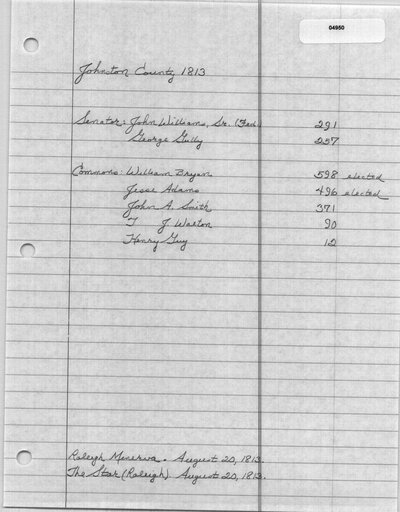 04950
Johnston County 1813
Senator: John Williams, Sr. (Fed.) 291
George Gully 257
Commons: William Bryan 598 elected
Jesse Adams 496 elected
John A. Smith 371
T J. Walton 90
Henry Guy 12
Raleigh Minerva. August 20, 1813.
The Star (Raleigh). August 20, 1813.